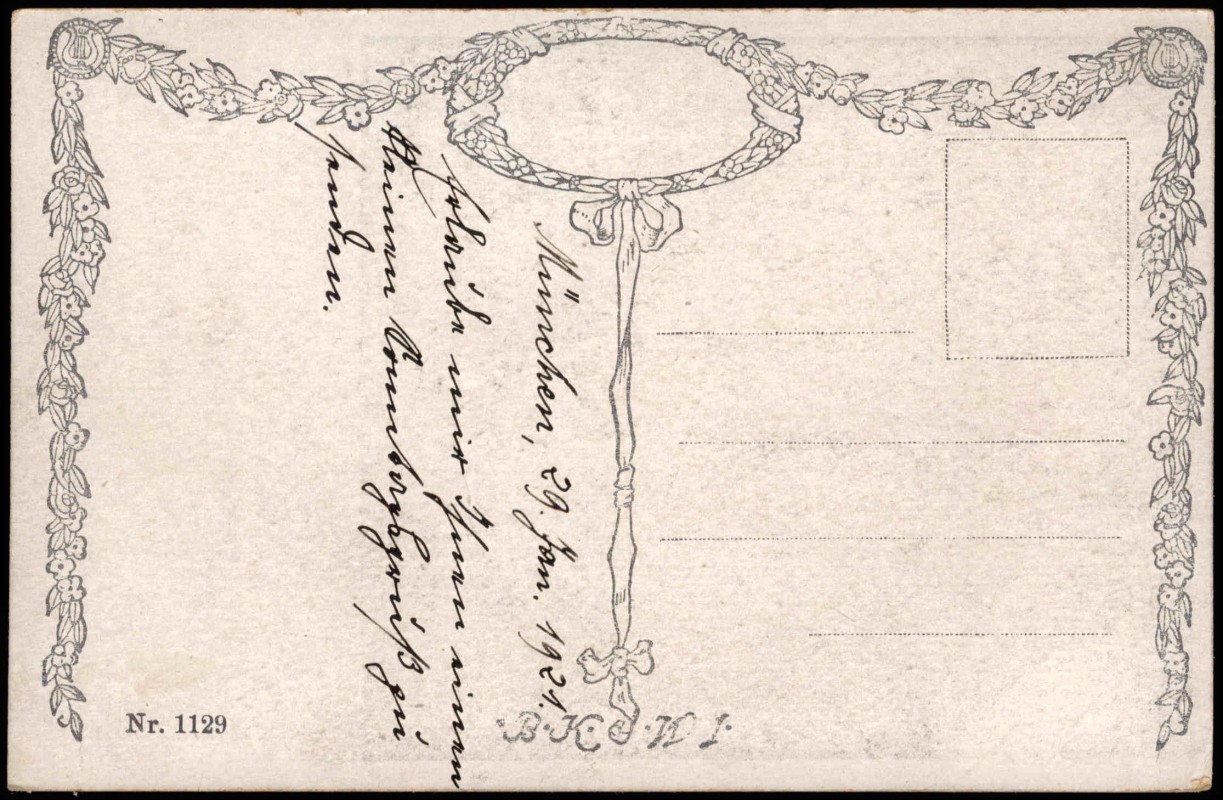 München, 29. Jan. 1921.
Erlaube mir Ihnen einen
kleinen Sonntagsgruß zu
senden.
Nr. 1129
B.K.W.I.